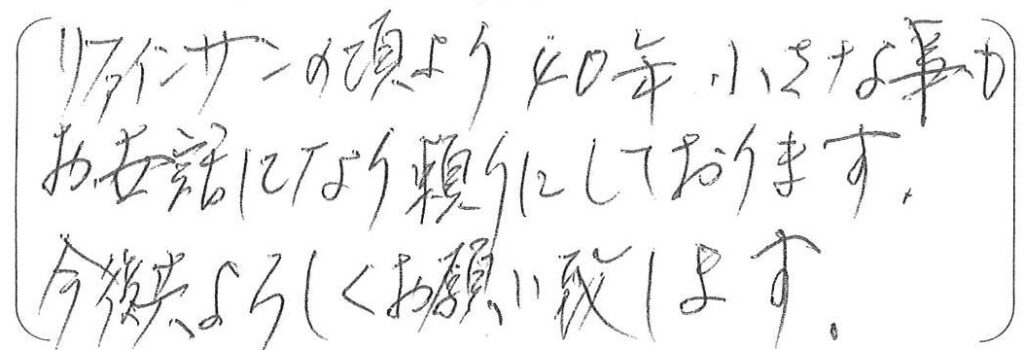 リファインサンの頃より40年、小さな事も
お世話になり頼りにしております。
今後共よろしくお願い致します。